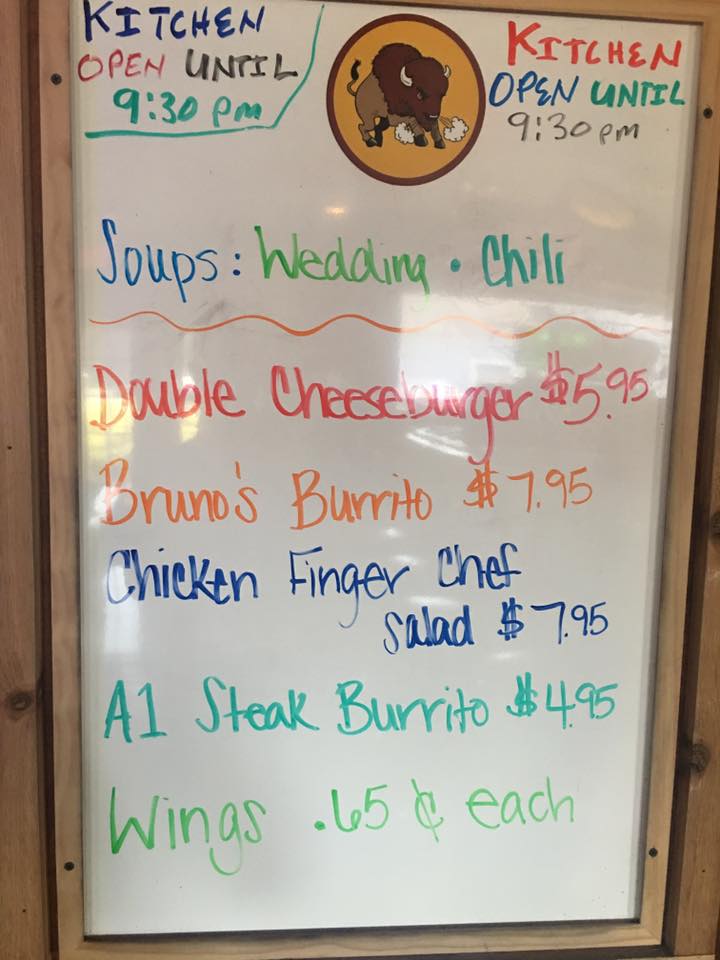 KITCHEN
OPEN UNTIL
9:30 pm
KITCHEN
OPEN UNTIL
9:30 pm
Soups: Wedding • Chili
Double Cheeseburger $5.95
Bruno's Burrito $7.95
Chicken Finger Chef
Salad $7.95
A1 Steak Burrito $4.95
Wings .65 ¢ each